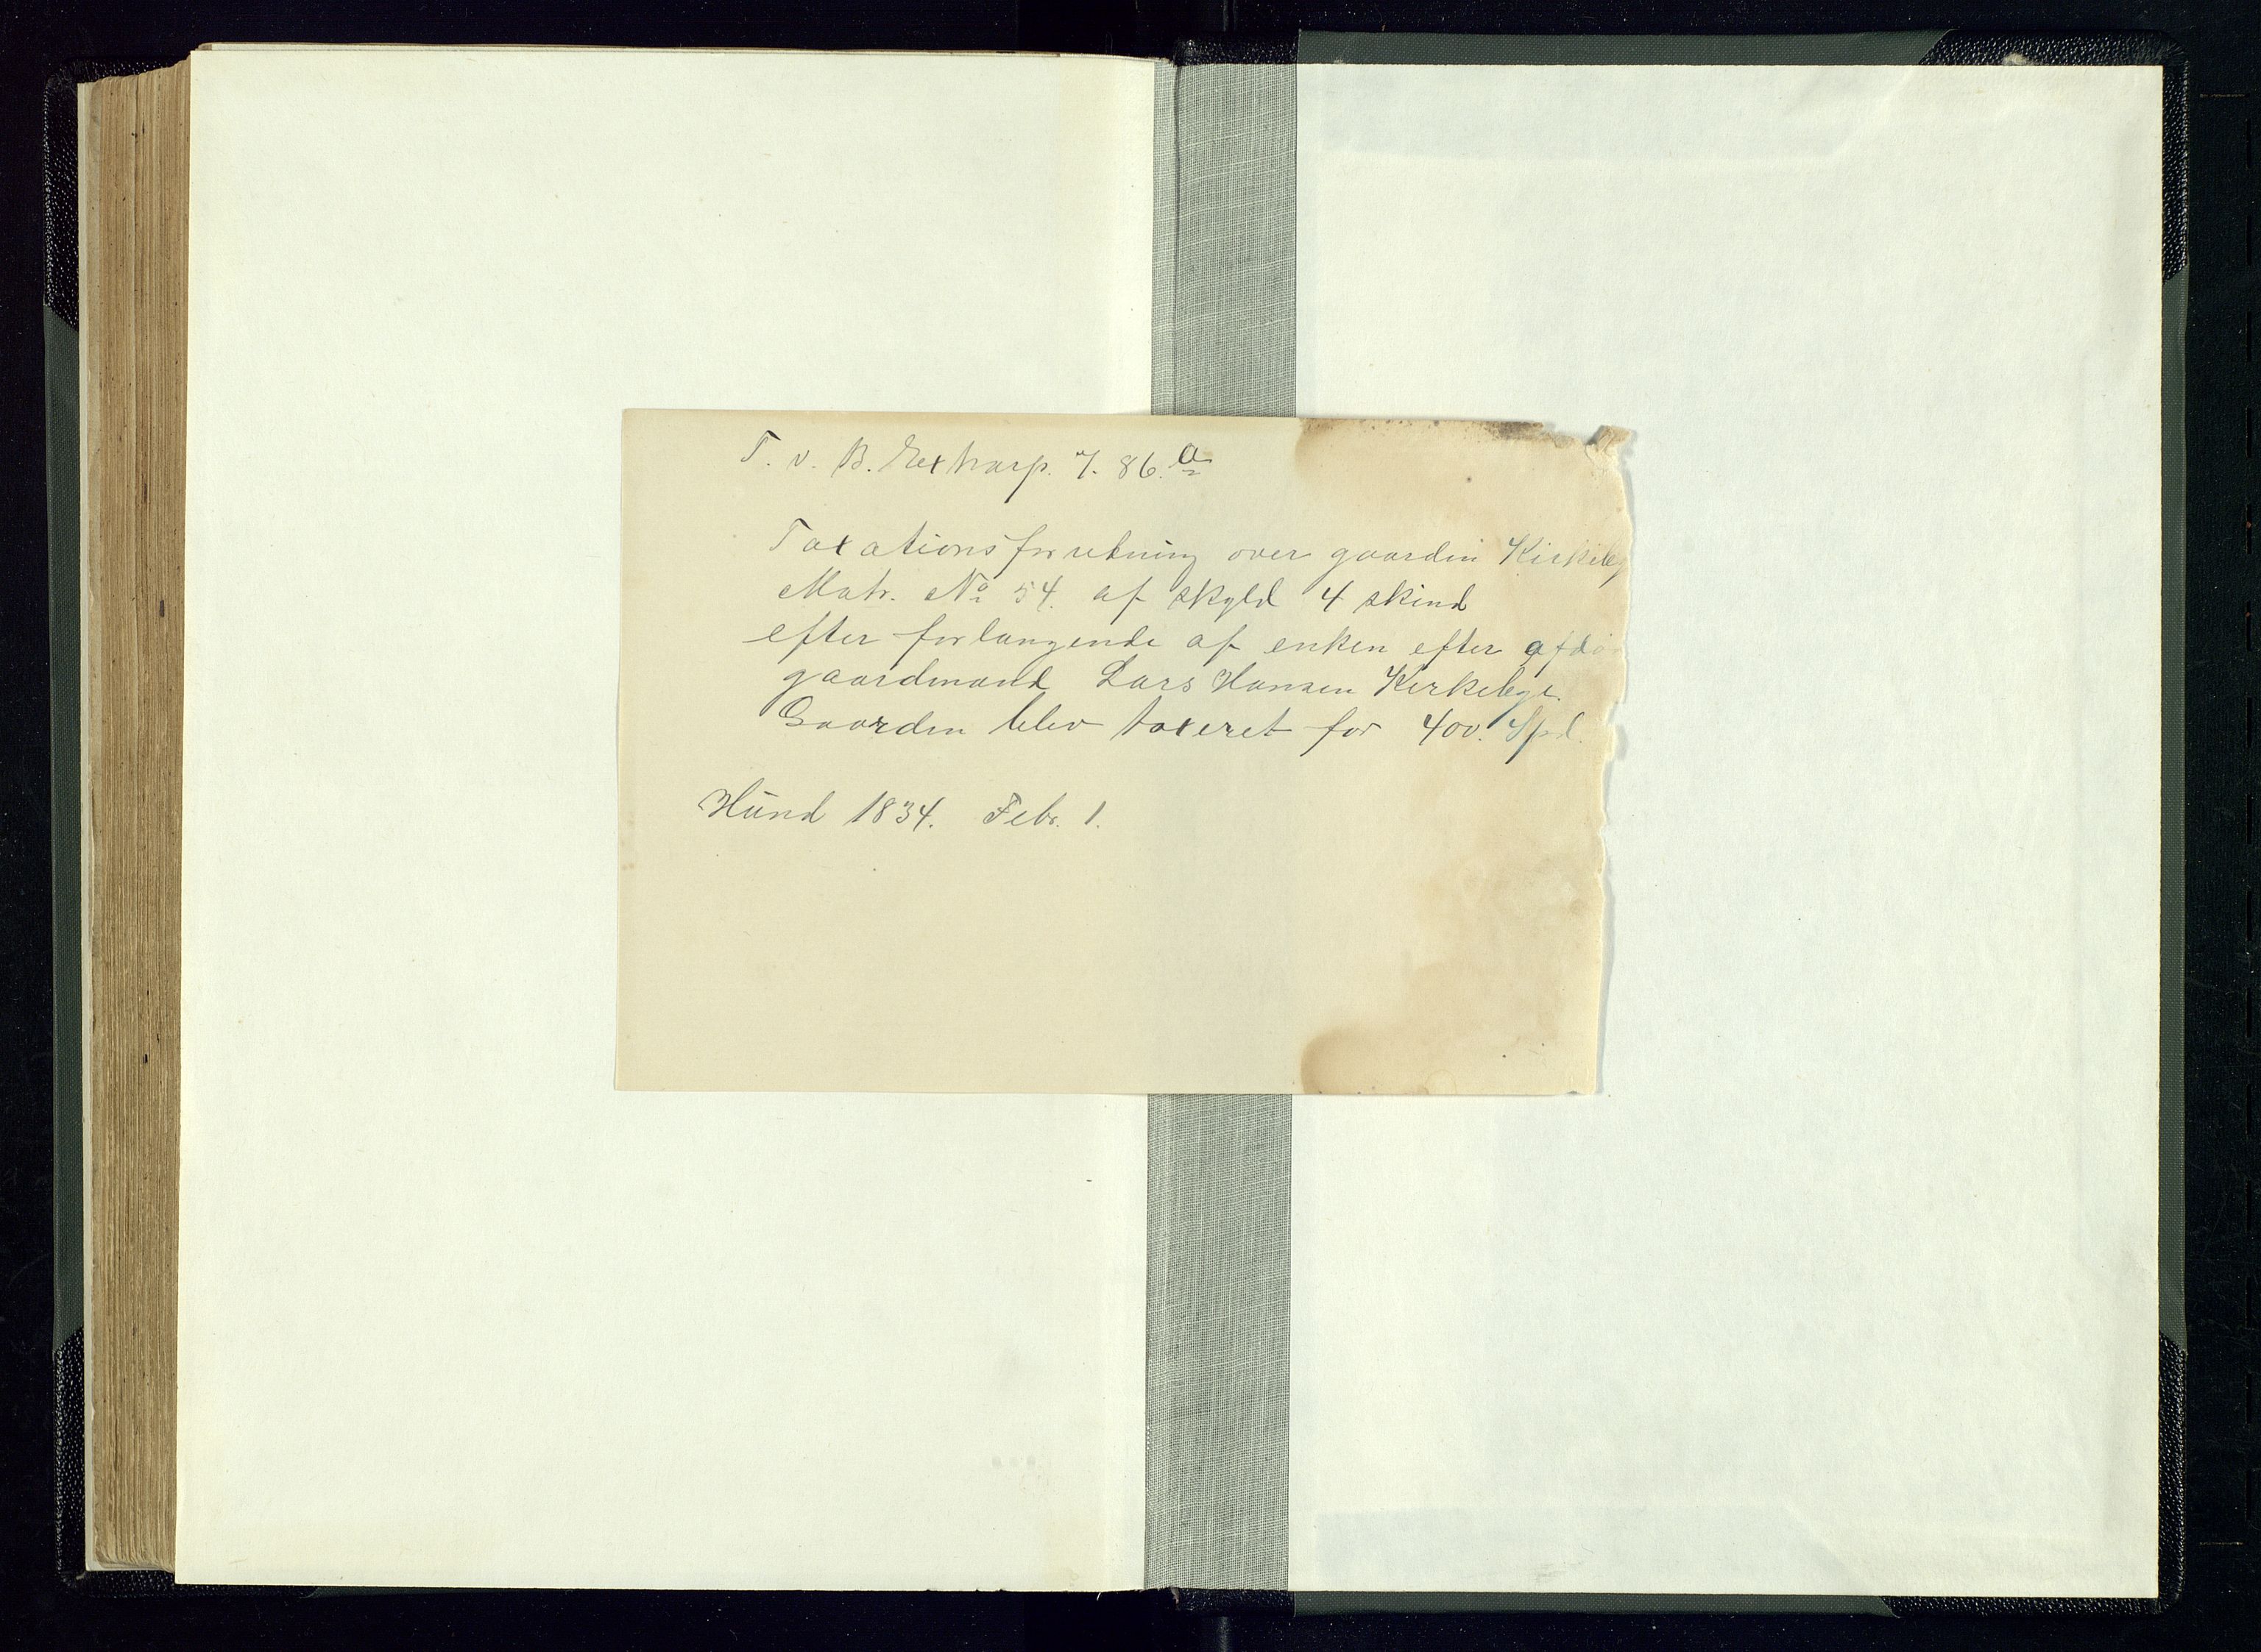 T. v. B. Extrasp. 7. 86. a
Taxationsforretning over gaarden Kirkeby
Matr. No 54. af skyld 4 skind
efter forlangende af enken efter afdø
gaardmand Lars Hansen Kirkebye.
Gaarden blev taxeret for 400. Spd.
Hund 1834. Febr. 1.